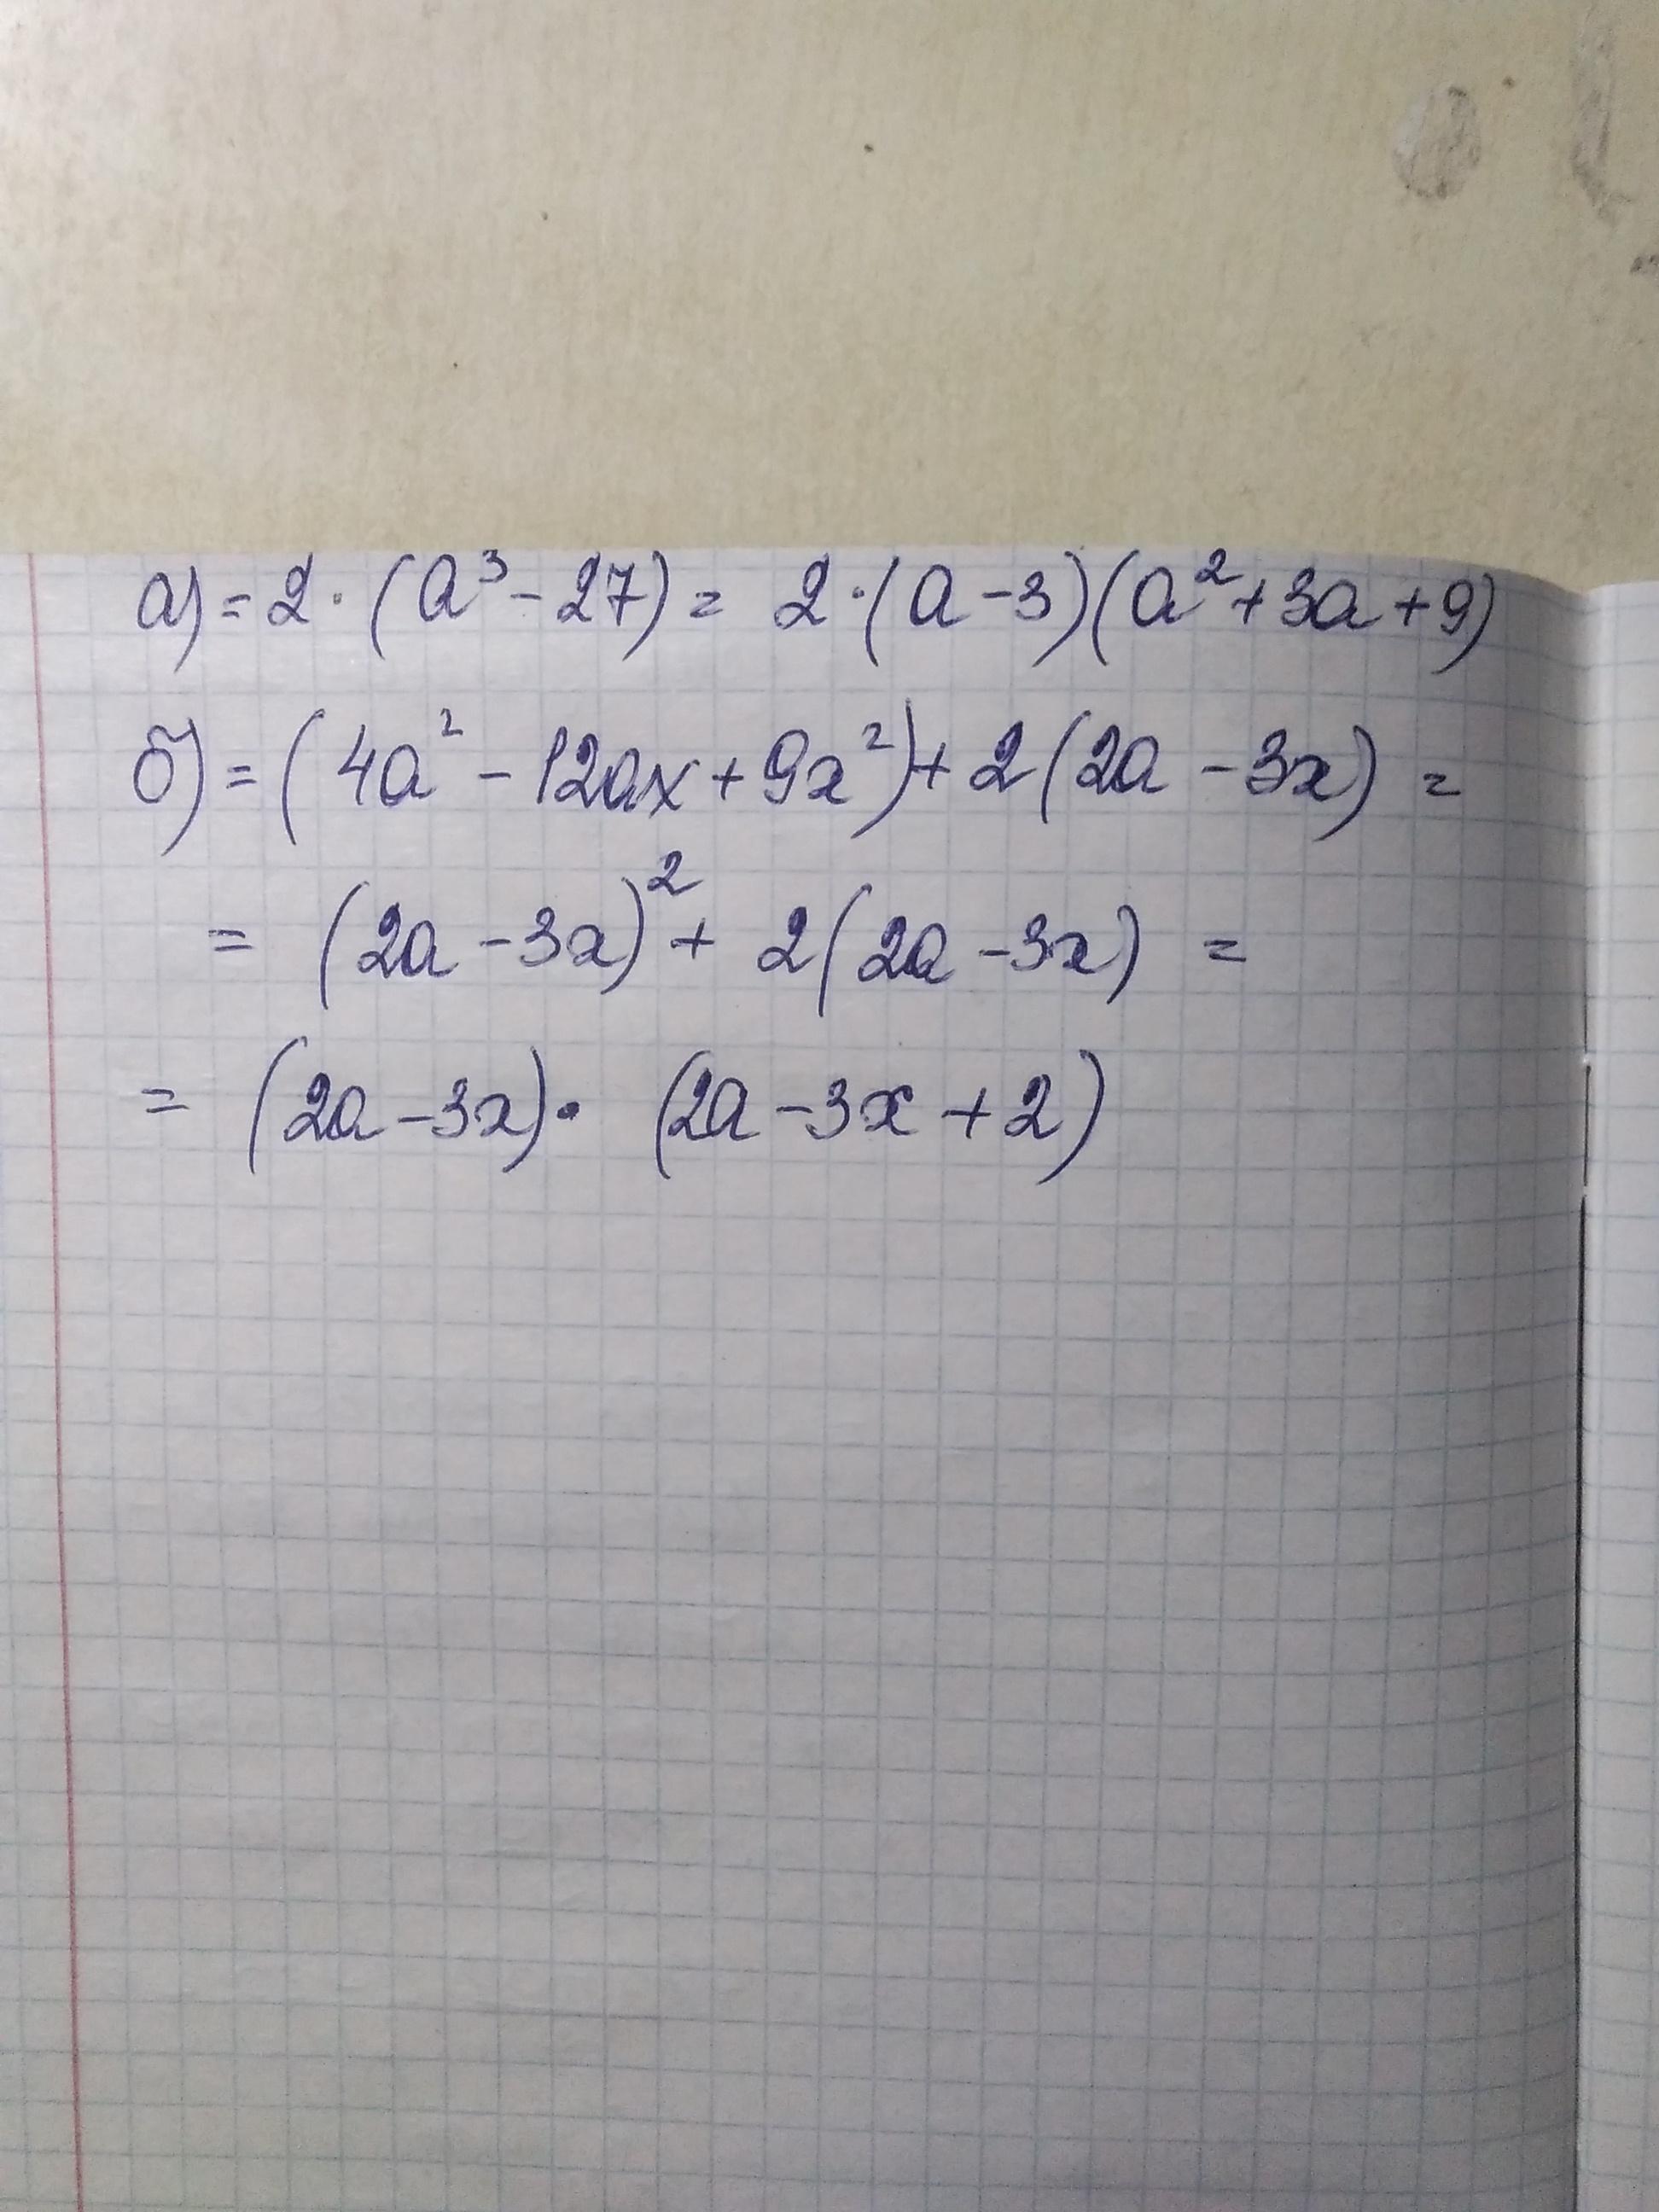 а) = 2 · (a³ - 27) = 2 · (a - 3)(a² + 3a + 9)
б) = (4a² - 12ax + 9x²) + 2(2a - 3x) =
= (2a - 3x)² + 2(2a - 3x) =
= (2a - 3x) · (2a - 3x + 2)